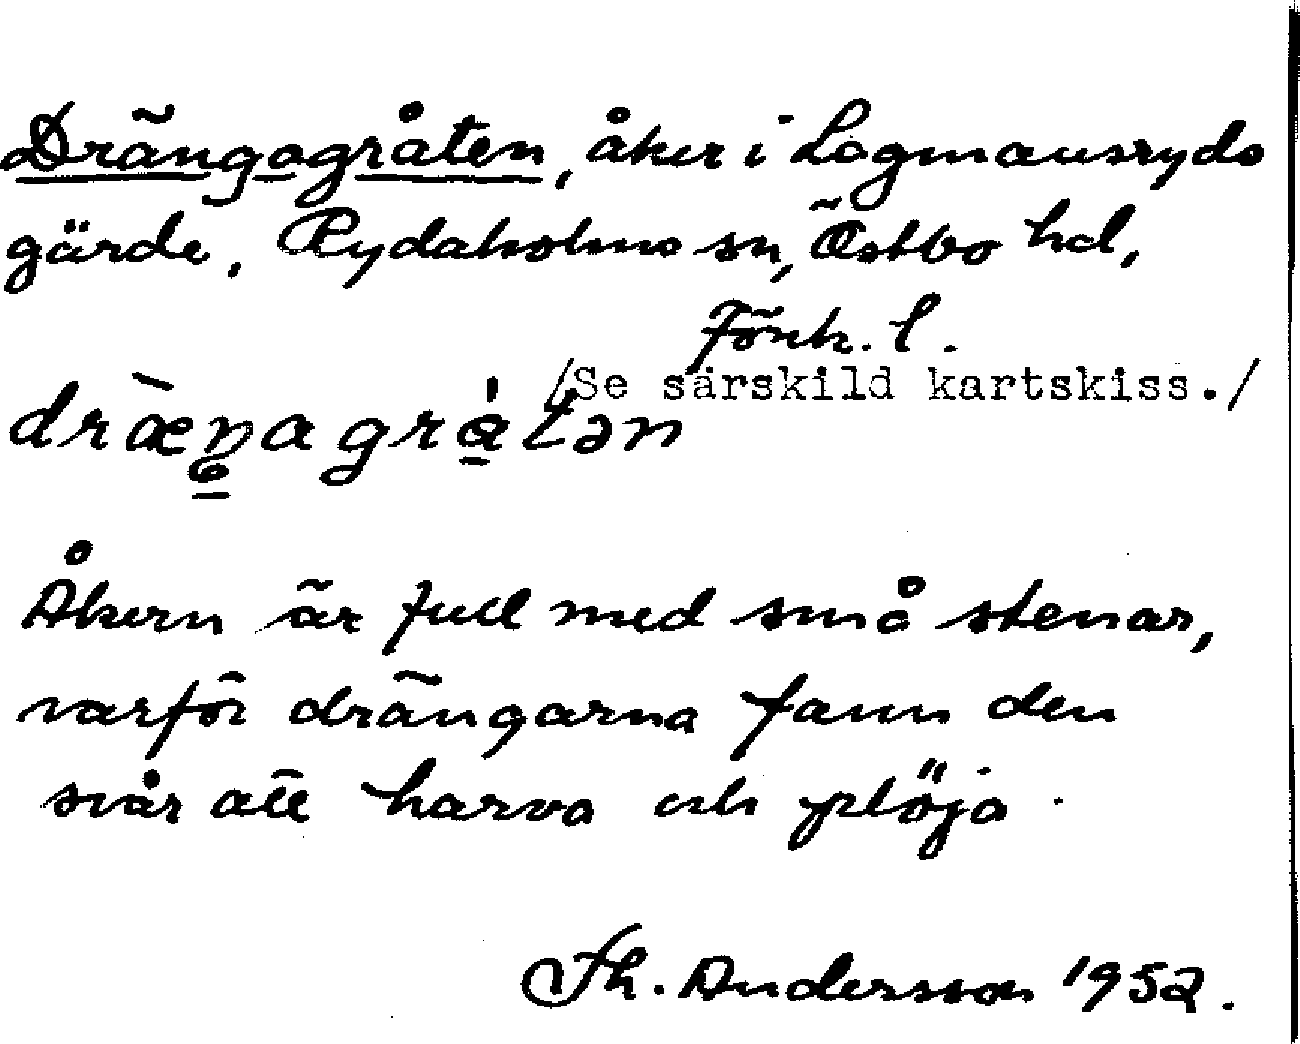 Drängagråten, åker i Lagmansryds
gärde, Rydaholms sn, Östbo hd,
Jönk. l.
/Se särskild kartskiss./
dræŋagråtən
Åkern är full med små stenar,
varför drängarna fann den
svår att harva och plöja.
Th. Andersson 1952.